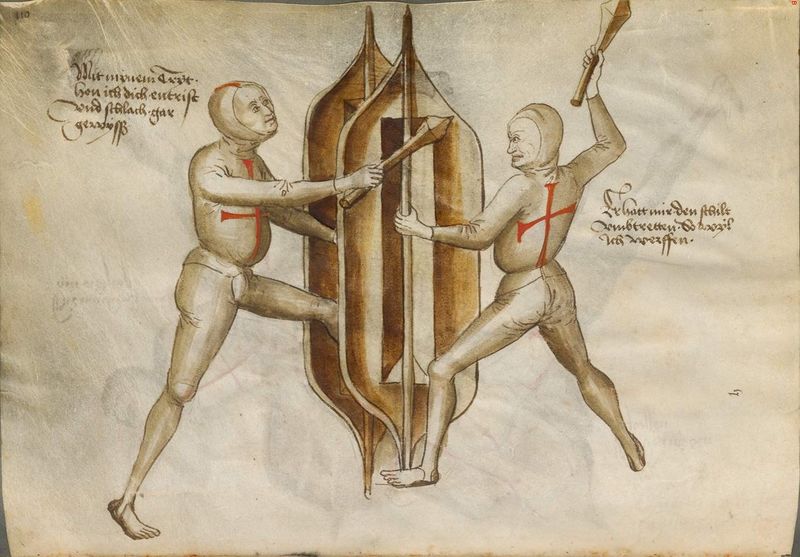 110
Mit minem Tryt·
hon ich dich·entrist
Vnd schlach·gar
gewyss
Er hatt mir·den schilt
Vmbtretten·So wyl
Ich werffen·